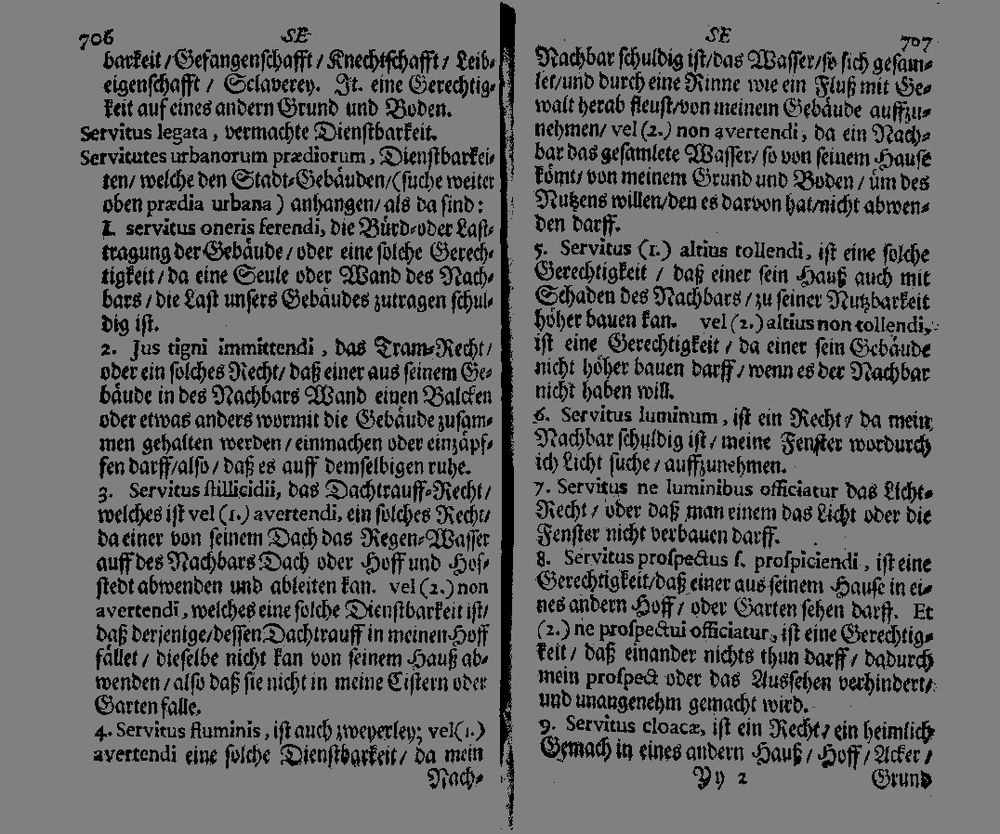 706 SE
barkeit/Gefangenschafft/Knechtschafft/Leib-
eigenschafft/ Sclaverey. It. eine Gerechtig-
keit auf eines andern Grund und Boden.
Servitus legata, vermachte Dienstbarkeit.
Servitutes urbanorum prædiorum, Dienstbarkei-
ten/ welche den Stadt-Gebäuden/(suche weiter
oben prædia urbana) anhangen/ als da sind:
1. servitus oneris ferendi, die Bürd-oder Last-
tragung der Gebäude/ oder eine solche Gerech-
tigkeit/ da eine Seule oder Wand des Nach-
bars/ die Last unsers Gebäudes zutragen schul-
dig ist.
2. Jus tigni immittendi, das Tram-Recht/
oder ein solches Recht/ daß einer aus seinem Ge-
bäude in des Nachbars Wand einen Balcken
oder etwas anders wormit die Gebäude zusam-
men gehalten werden/ einmachen oder einzäpf-
fen darff/also/ daß es auff demselbigen ruhe.
3. Servitus stillicidii, das Dachtrauff-Recht/
welches ist vel (1.) avertendi, ein solches Recht/
da einer von seinem Dach das Regen-Wasser
auff des Nachbars Dach oder Hoff und Hof-
stedt abwenden und ableiten kan. vel (2.) non
avertendi, welches eine solche Dienstbarkeit ist/
daß derjenige/dessen Dachtrauff in meinen Hoff
fället/ dieselbe nicht kan von seinem Hauß ab-
wenden/ also daß sie nicht in meine Cistern oder
Garten falle.
4. Servitus fluminis, ist auch zweyerley; vel (1.)
avertendi eine solche Dienstbarkeit/ da mein
Nach-
SE 707
Nachbar schuldig ist/das Wasser/so sich gesam-
let/und durch eine Rinne wie ein Fluß mit Ge-
walt herab fleust/von meinem Gebäude auffzu-
nehmen/ vel (2.) non avertendi, da ein Nach-
bar das gesamlete Wasser/ so von seinem Hause
kömt/ von meinem Grund und Boden/ üm des
Nutzens willen/den es darvon hat/nicht abwen-
den darff.
5. Servitus (1.) altius tollendi, ist eine solche
Gerechtigkeit/ daß einer sein Hauß auch mit
Schaden des Nachbars/ zu seiner Nutzbarkeit
höher bauen kan. vel (2.) altius non tollendi,
ist eine Gerechtigkeit/ da einer sein Gebäude
nicht höher bauen darff/ wenn es der Nachbar
nicht haben will.
6. Servitus luminum, ist ein Recht/ da mein
Nachbar schuldig ist/ meine Fenster wordurch
ich Licht suche/ auffzunehmen.
7. Servitus ne luminibus officiatur das Licht-
Recht/ oder daß man einem das Licht oder die
Fenster nicht verbauen darff.
8. Servitus prospectus s. prospiciendi, ist eine
Gerechtigkeit/daß einer aus seinem Hause in ei-
nes andern Hoff/ oder Garten sehen darff. Et
(2.) ne prospectui officiatur, ist eine Gerechtig-
keit/ daß einander nichts thun darff/ dadurch
mein prospect oder das Aussehen verhindert/
und unangenehm gemacht wird.
9. Servitus cloacæ, ist ein Recht/ ein heimlich
Gemach in eines andern Hauß/ Hoff/ Acker/
Yy 2 Grund